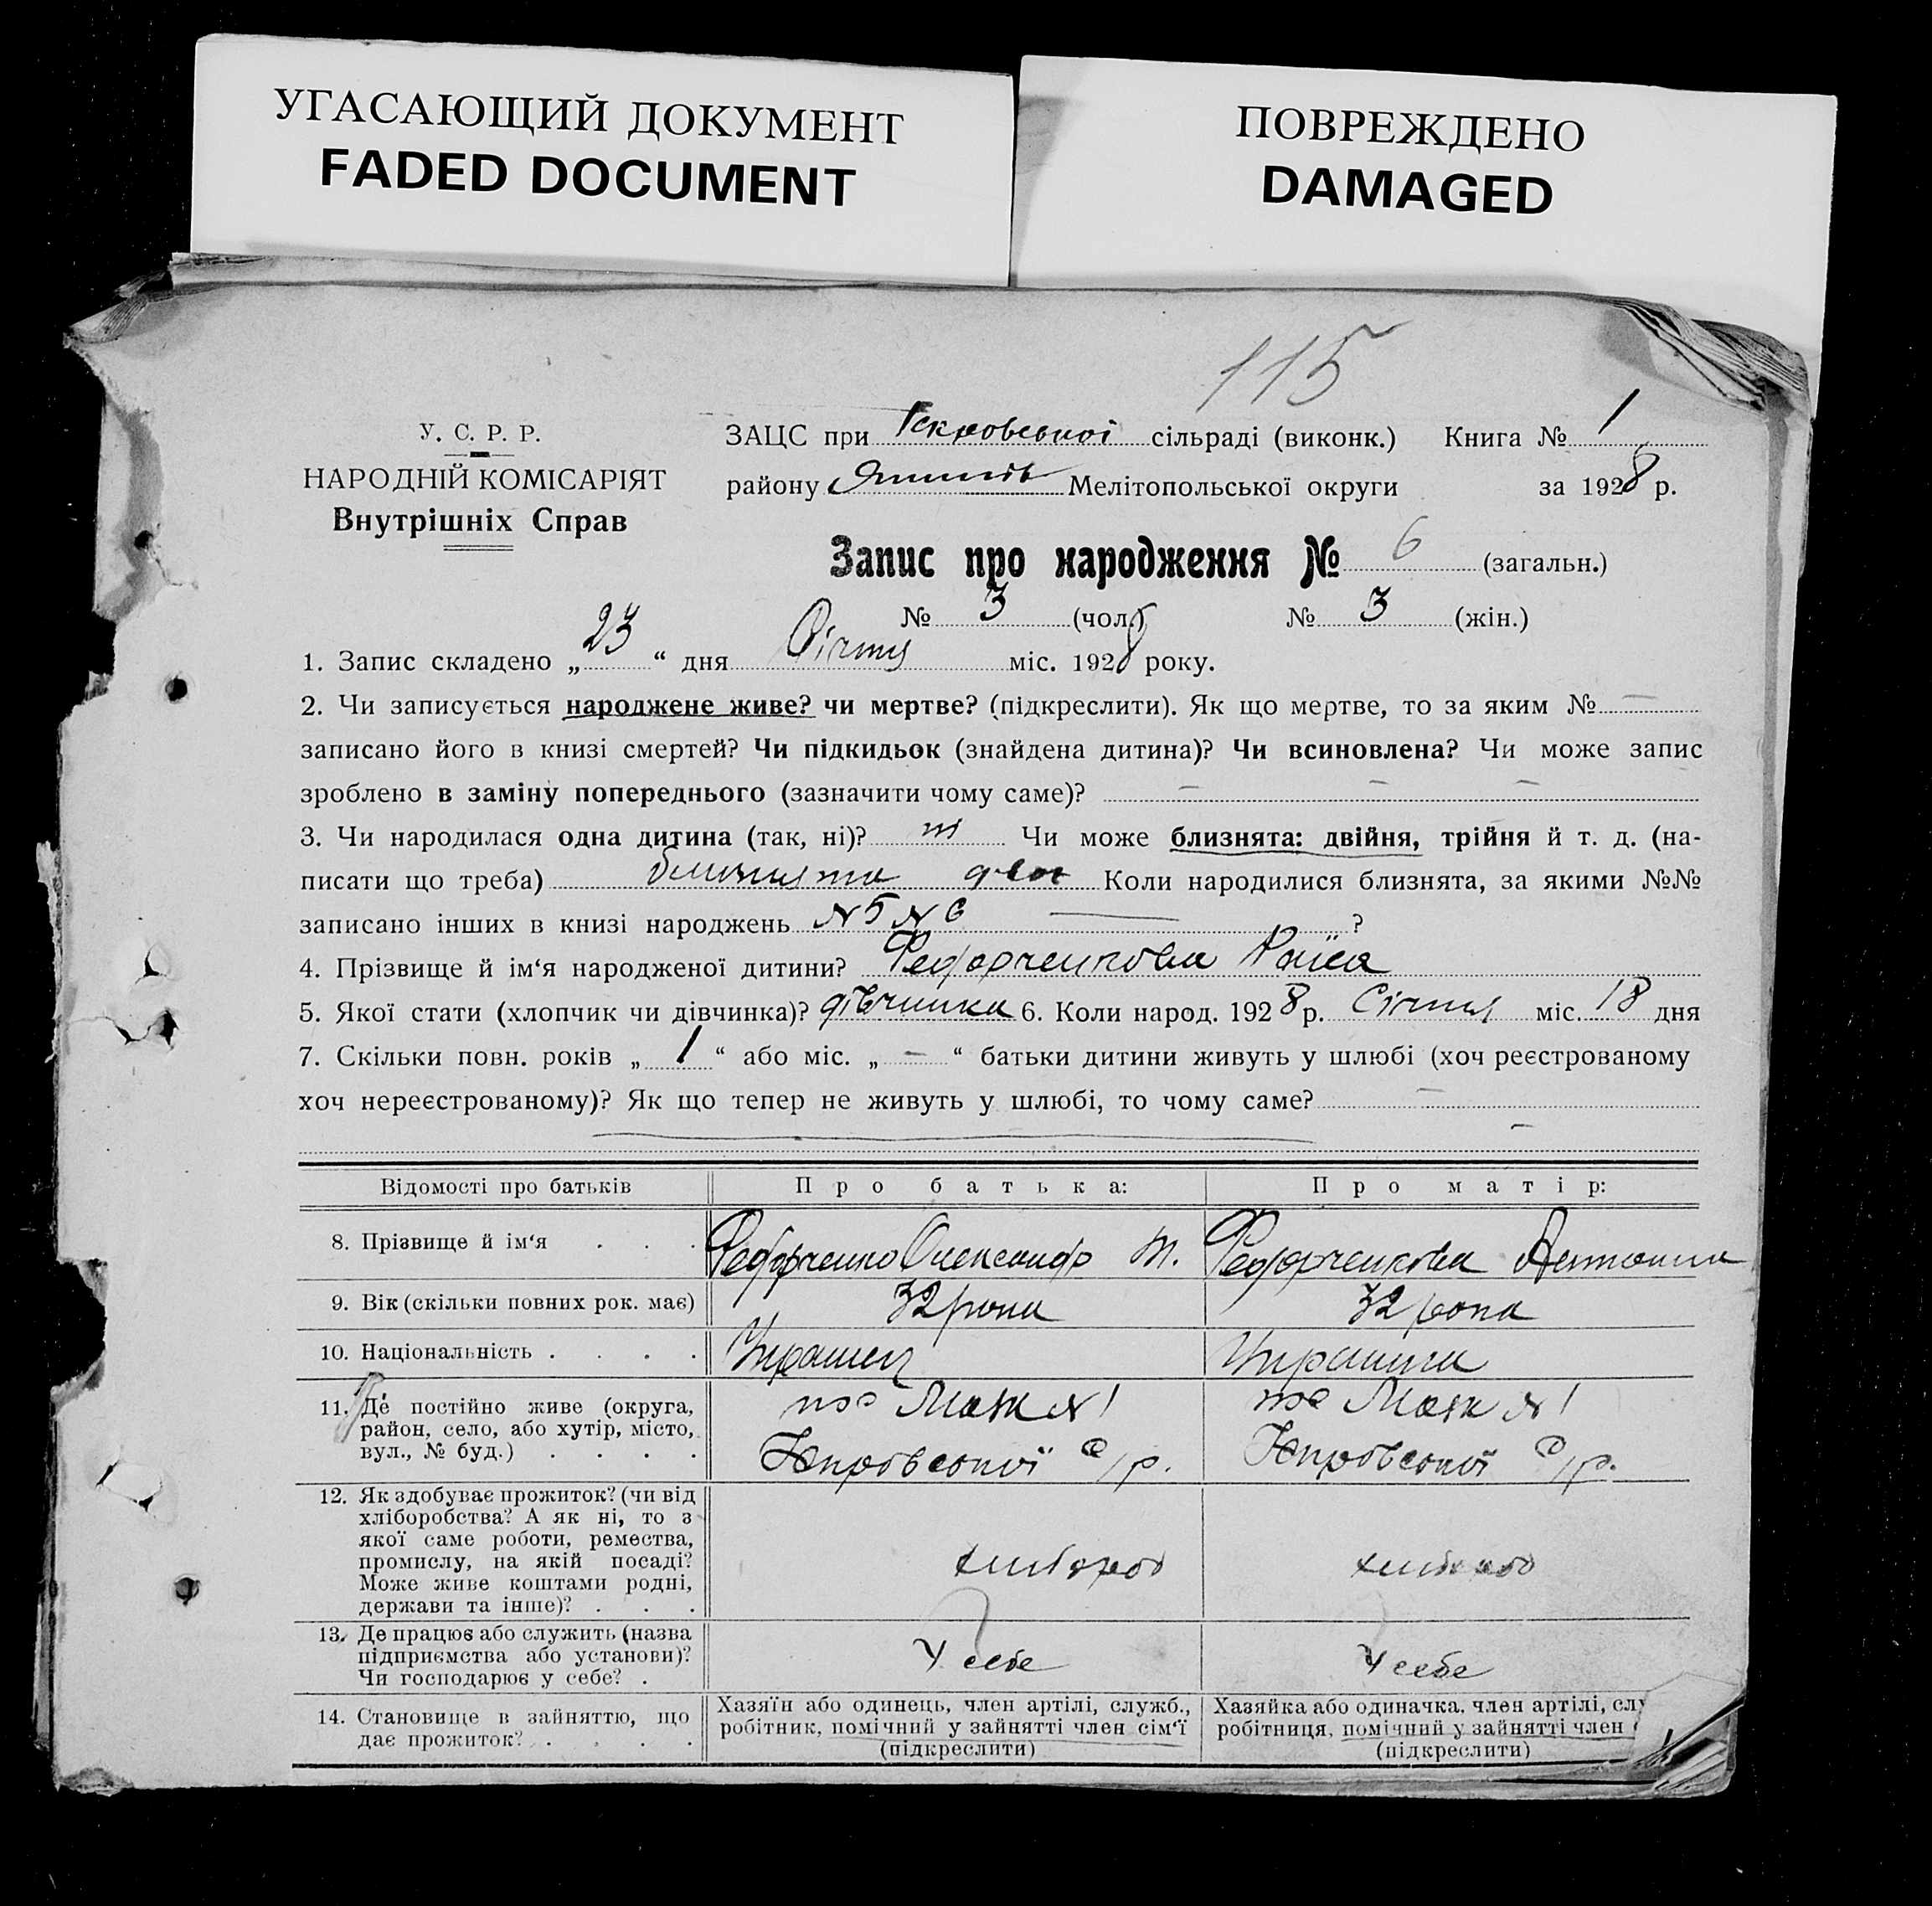 УГАСАЮЩИЙ ДОКУМЕНТ
FADED DOCUMENT
ПОВРЕЖДЕНО
DAMAGED
115
У. С. Р. Р.
НАРОДНІЙ КОМІСАРІЯТ
Внутрішніх Справ
ЗАЦС при сільраді (виконк.) Книга № 1
району Мелітопольської округи за 1928 р.
Запис про народження № 6 (загальн.)
№ 3 (чол.) № 3 (жін.)
1. Запис складено „ 23 “ дня Січня міс. 1928 року.
2. Чи записується народжене живе? чи мертве? (підкреслити). Як що мертве, то за яким № —
записано його в книзі смертей? Чи підкидьок (знайдена дитина)? Чи всиновлена? Чи може запис
зроблено в заміну попереднього (зазначити чому саме)? — — —
3. Чи народилася одна дитина (так, ні)? ні Чи може близнята: двійня, трійня й т. д. (на-
писати що треба) близнята двоє Коли народилися близнята, за якими №№
записано інших в книзі народжень № 5 № 6 — ?
4. Прізвище й ім‘я народженої дитини? Федорченкова Раїса
5. Якої стати (хлопчик чи дівчинка)? дівчинка 6. Коли народ. 1928 р. Січня міс. 18 дня
7. Скільки повн. років „ 1 “ або міс. „ — “ батьки дитини живуть у шлюбі (хоч реєстрованому
хоч нереєстрованому)? Як що тепер не живуть у шлюбі, то чому саме? —
Відомості про батьків Про батька: Про матір:
8. Прізвище й ім‘я . . . Федорченко Олександр М. Федорченкова Антонина
9. Вік (скільки повних рок. має) 32 роки 32 роки
10. Національність . . . . Українец Українка
11. Де постійно живе (округа, пос Маяк № 1 пос Маяк № 1
район, село, або хутір, місто,
вул., № буд.) . . . . с/р. с/р.
12. Як здобуває прожиток? (чи від
хліборобства? А як ні, то з
якої саме роботи, ремества,
промислу, на якій посаді? хлібороб хлібороб
Може живе коштами родні,
держави та інше)? . . .
13. Де працює або служить (назва
підприємства або установи)? У себе У себе
Чи господарює у себе? .
14. Становище в зайняттю, що Хазяїн або одинець, член артілі, служб., Хазяйка або одиначка, член артілі, слу
дає прожиток? . . . . робітник, помічний у зайнятті член сім‘ї робітниця, помічний у зайнятті член
(підкреслити) (підкреслити)